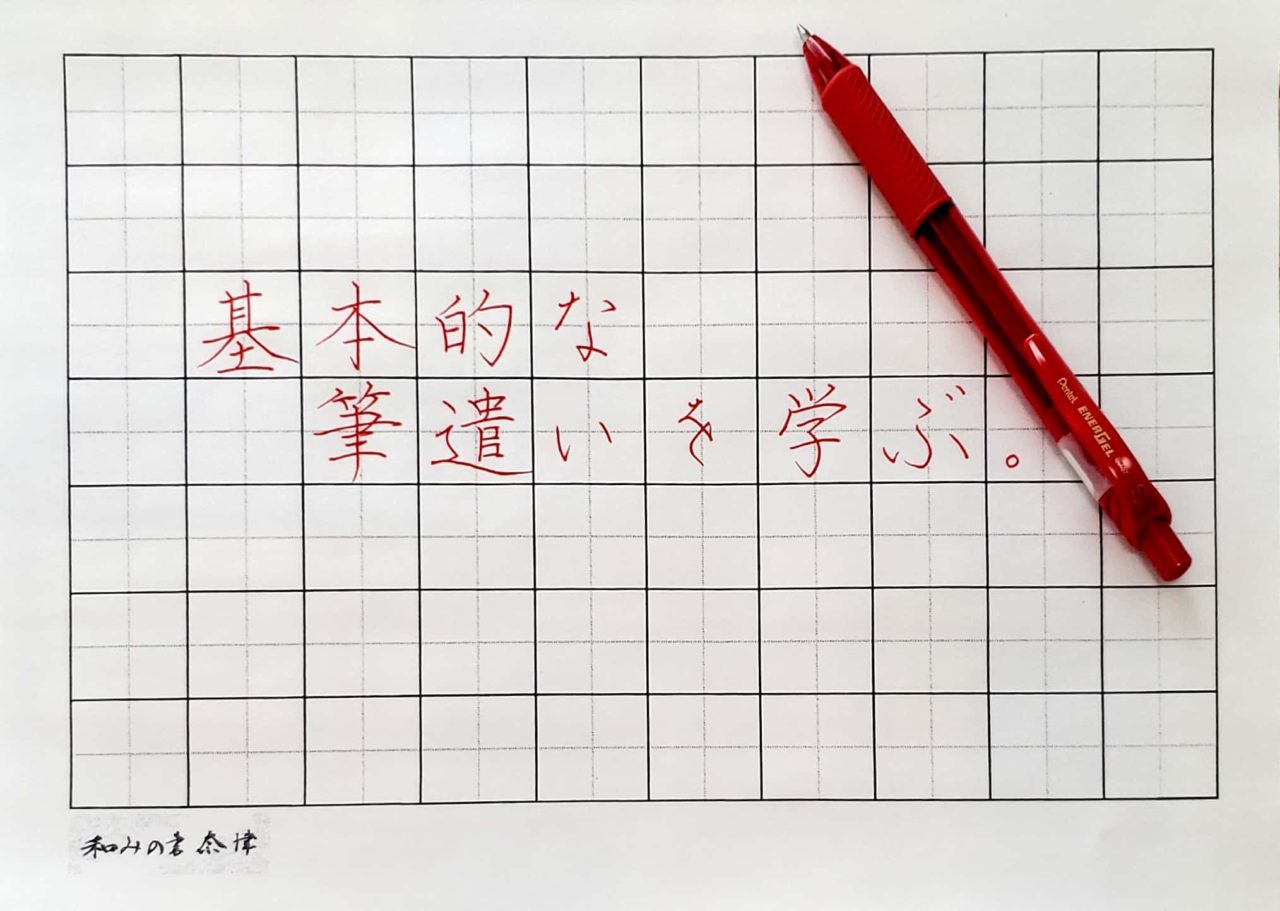 基本的な
筆遣いを学ぶ。
Pentel ENERGEL
和みの書 奈津